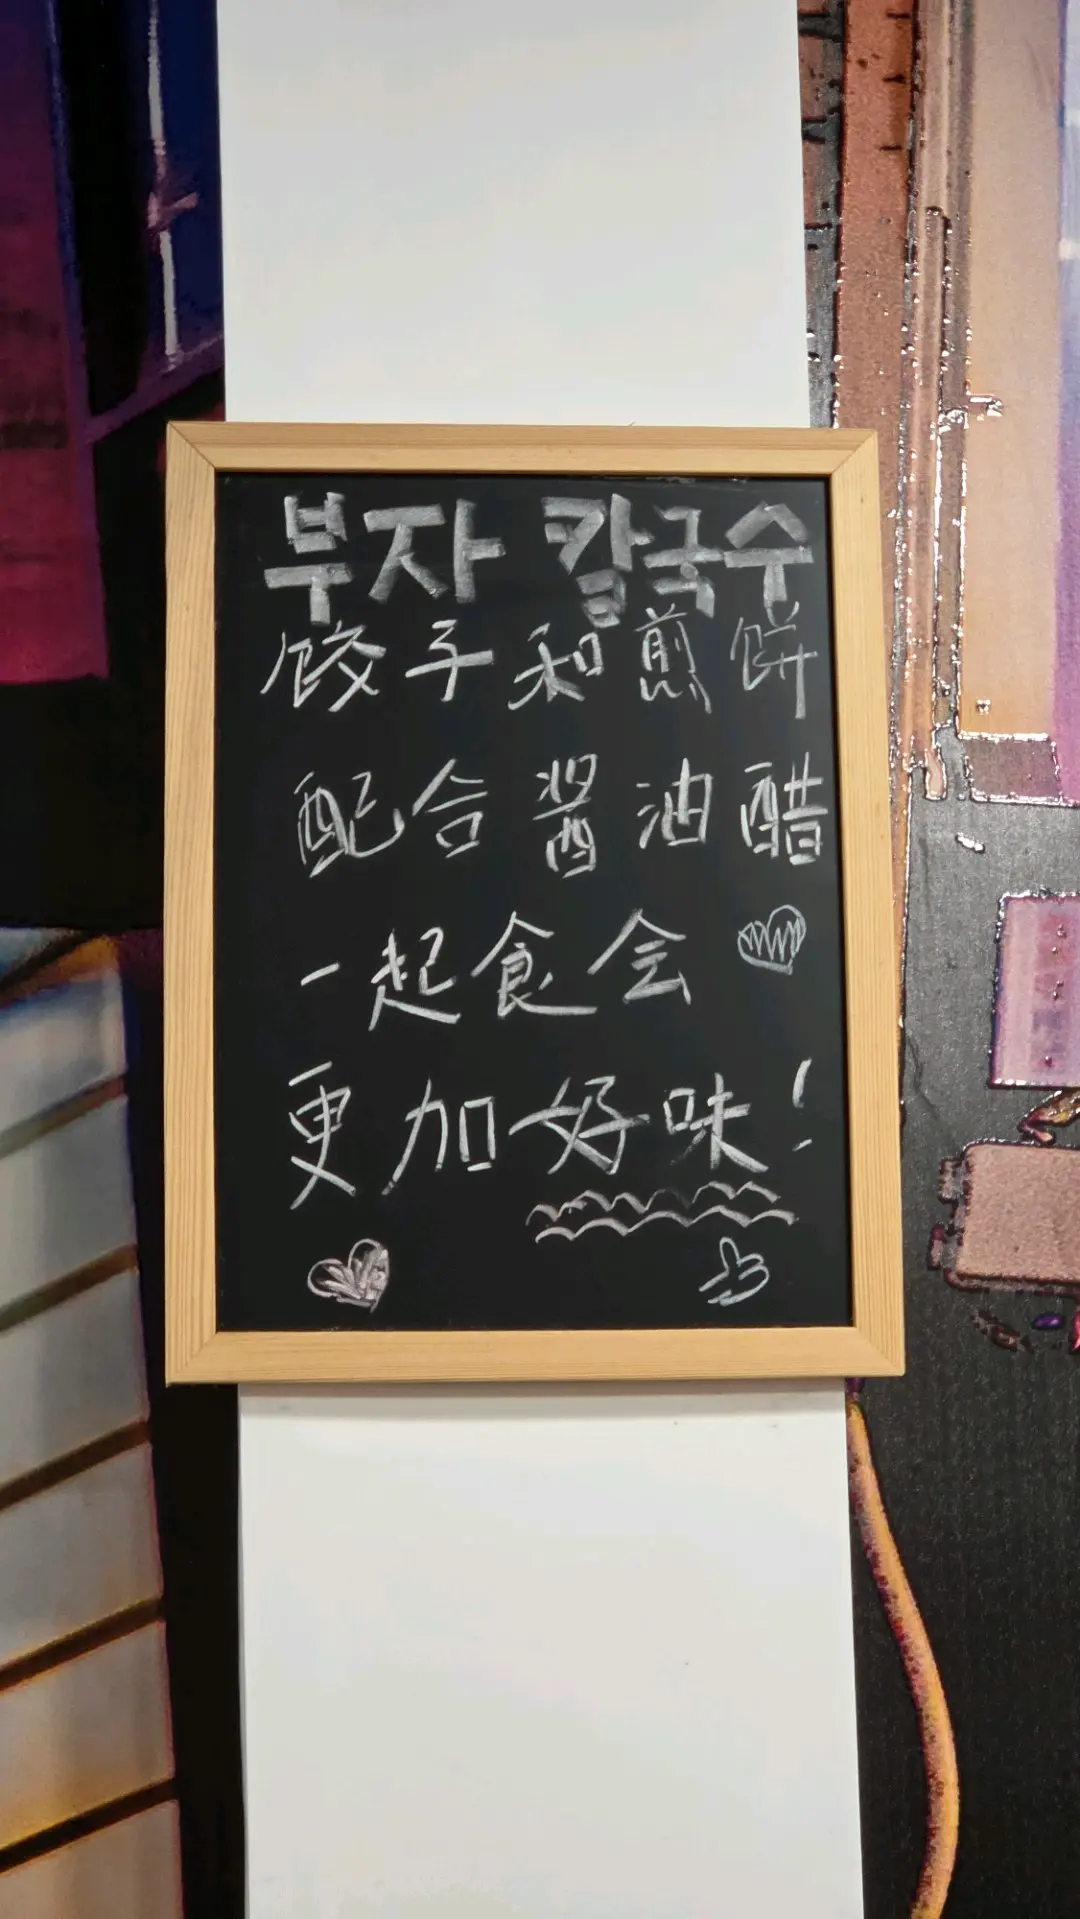 부자 칼국수
餃子和煎餅
配合醤油醋
一起食会
更加好味!